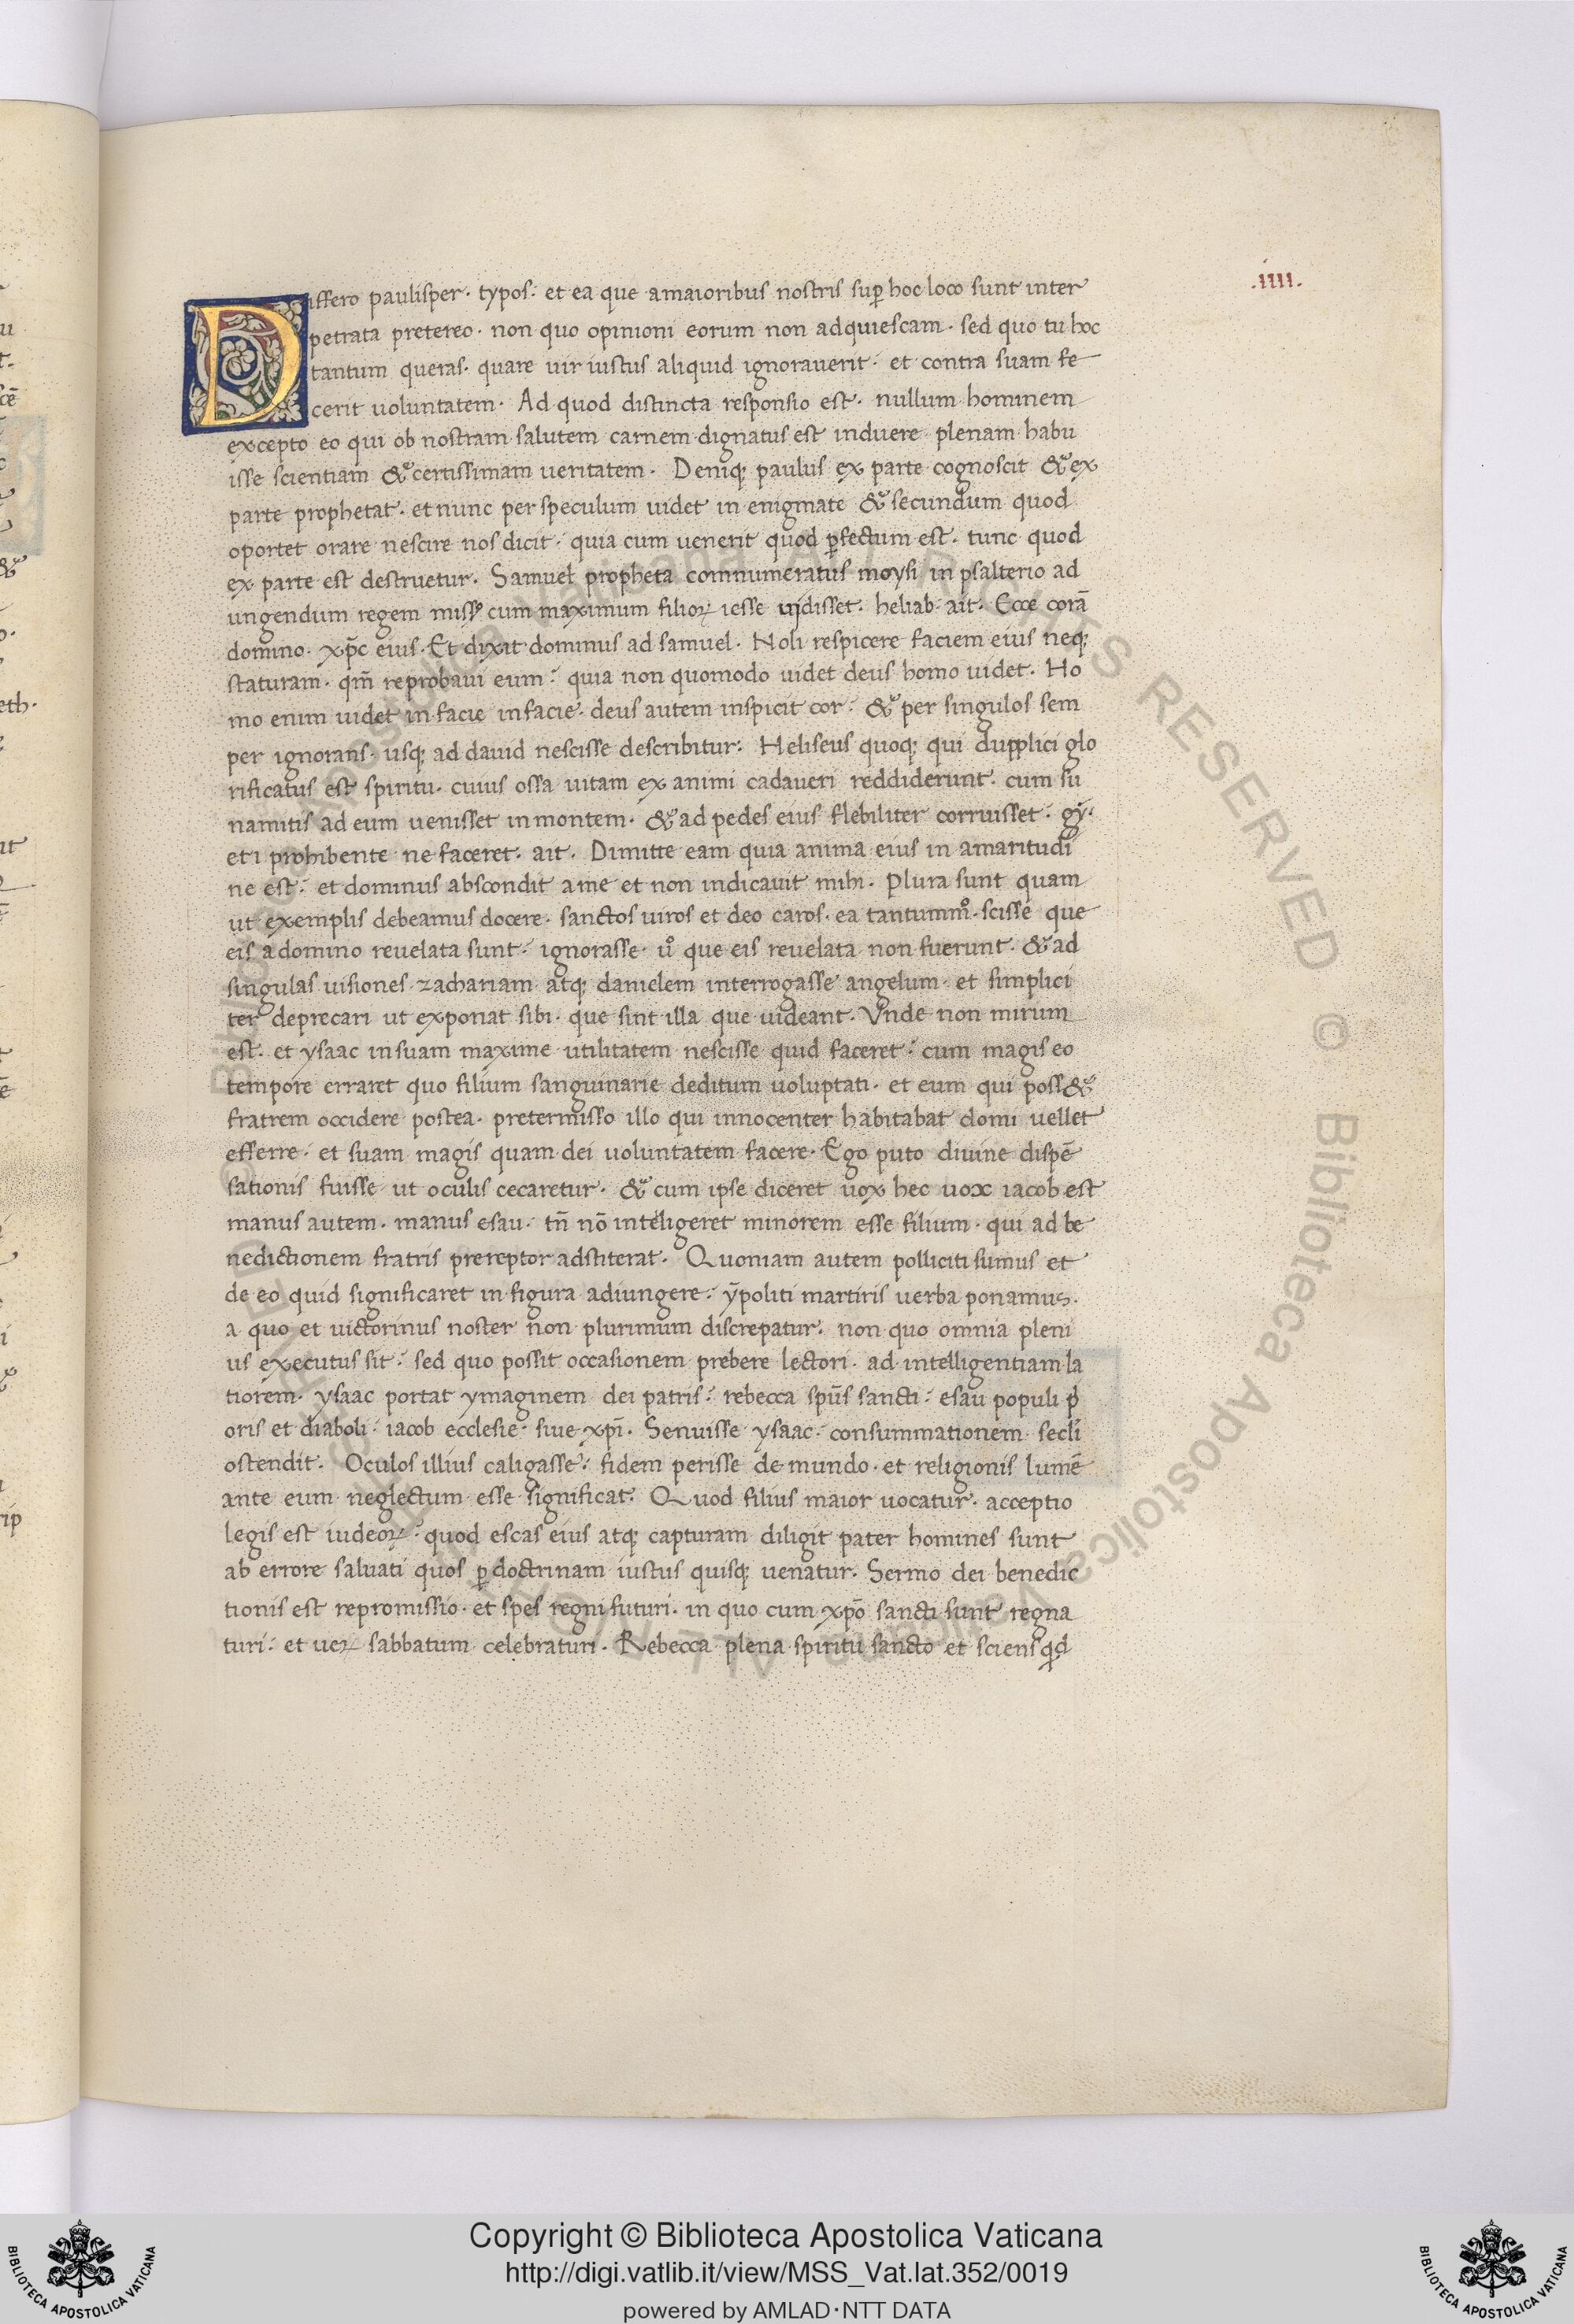 .iiii.
Differo paulisper· typos: et ea que amaioribus nostris sup̱ hoc loco sunt inter
petrata pretereo· non quo opinioni eorum non adquiescam· sed quo tu hoc
tantum queras· quare uir iustus aliquid ignorauerit· et contra suam fe
cerit uoluntatem· Ad quod distincta responsio est· nullum hominem
excepto eo qui ob nostram salutem carnem dignatus est induere plenam habu
isse scientiam & certissimam ueritatem· Deniq; paulus ex parte cognoscit & ex
parte prophetat· et nunc per speculum uidet in enigmate & secundum quod
oportet orare nescire nos dicit· quia cum uenerit quod ꝑfectum est· tunc quod
ex parte est destruetur· Samuel propheta comnumeratus moysi in psalterio ad
ungendum regem missꝰ cum maximum filioꝝ iesse uidisset· heliab· ait· Ecce corā
domino· xp̄c eius· Et dixit dominus ad samuel· Noli respicere faciem eius neq;
staturam· qm̄ reprobaui eum: quia non quomodo uidet deus homo uidet· Ho
mo enim uidet in facie in facie· deus autem inspicit cor: & per singulos sem
per ignorans· usq; ad dauid nescisse describitur: Heliseus quoq; qui dupplici glo
rificatus est spiritu· cuius ossa uitam ex animi cadaueri reddiderunt· cum su
namitis ad eum uenisset in montem· & ad pedes eius flebiliter corruisset· gy·
eti prohibente ne faceret· ait· Dimitte eam quia anima eius in amaritudi
ne est: et dominus abscondit a me et non indicauit mihi· Plura sunt quam
ut exemplis debeamus docere· sanctos uiros et deo caros· ea tantummº· scisse que
eis a domino reuelata sunt: ignorasse· uº que eis reuelata non fuerunt· & ad
singulas uisiones zachariam atq; danielem interrogasse angelum· et simplici
ter deprecari ut exponat sibi· que sint illa que uideant· Vnde non mirum
est· et ysaac in suam maxime utilitatem nescisse quid faceret: cum magis eo
tempore erraret quo filium sanguinarie deditum uoluptati· et eum qui poss&
fratrem occidere postea· pretermisso illo qui innocenter habitabat domi uellet
efferre· et suam magis quam dei uoluntatem facere· Ego puto diuine dispē
sationis fuisse ut oculis cecaretur· & cum ipse diceret uox hec uox iacob est
manus autem· manus esau· tn̄ nō inteligeret minorem esse filium· qui ad be
nedictionem fratris prereptor adstiterat· Quoniam autem polliciti sumus et
de eo quid significaret in figura adiungere: ypoliti martiris uerba ponamus·
a quo et uictorinus noster non plurimum discrepatur· non quo omnia pleni
us executus sit: sed quo possit occasionem prebere lectori· ad intelligentiam la
tiorem· ysaac portat ymaginem dei patris: rebecca spūs sancti: esau populi p̱
oris et diaboli· iacob ecclesie· siue xp̄i· Senuisse ysaac· consummationem secli
ostendit· Oculos illius caligasse: fidem perisse de mundo· et religionis lumē
ante eum neglectum esse significat· Quod filius maior uocatur· acceptio
legis est iudeoꝝ· quod escas eius atq; capturam diligit pater homines sunt
ab errore saluati quos ꝑ doctrinam iustus quisq; uenatur· Sermo dei benedic
tionis est repromissio· et spes regni futuri· in quo cum xp̄o sancti sunt regna
turi: et ueꝝ sabbatum celebraturi· Rebecca plena spiritu sancto et sciens qd
Copyright © Biblioteca Apostolica Vaticana
http://digi.vatlib.it/view/MSS_Vat.lat.352/0019
powered by AMLAD·NTT DATA